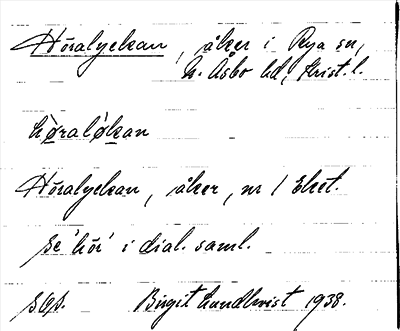 Höralyckan, åker i Rya sn,
N. Åsbo hd, Krist. l.
hø̀raløkan
Höralyckan, åker, nr 1 Eket.
se 'hör' i dial. saml.
Birgit Lundkvist 1938.